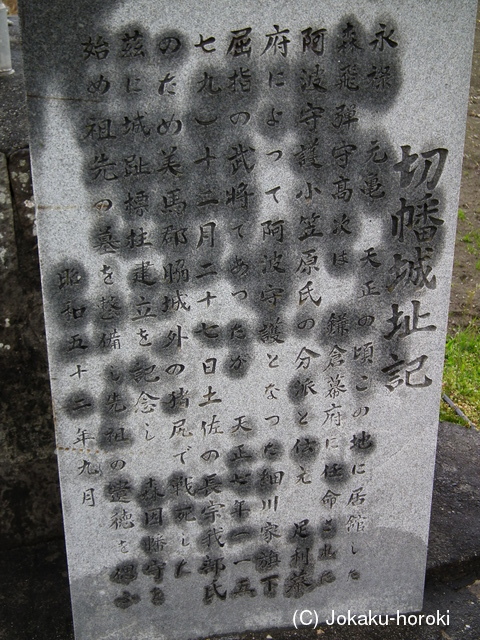 切幡城址記
永禄 元亀 天正の頃この地に居館した
森飛騨守高次は 鎌倉幕府に任命された
阿波守護小笠原氏の分派と伝え 足利幕
府によって阿波守護となった細川家旗下
屈指の武将であったが 天正七年(一五
七九)十二月二十七日土佐の長宗我部氏
のため美馬郡脇城外の 尻で戦死した
茲に城趾標柱建立を記念し 森因幡守を
始め祖先の墓を整備し先祖の遺徳を偲ぶ
昭和五十二年九月
(C) Jokaku-horoki